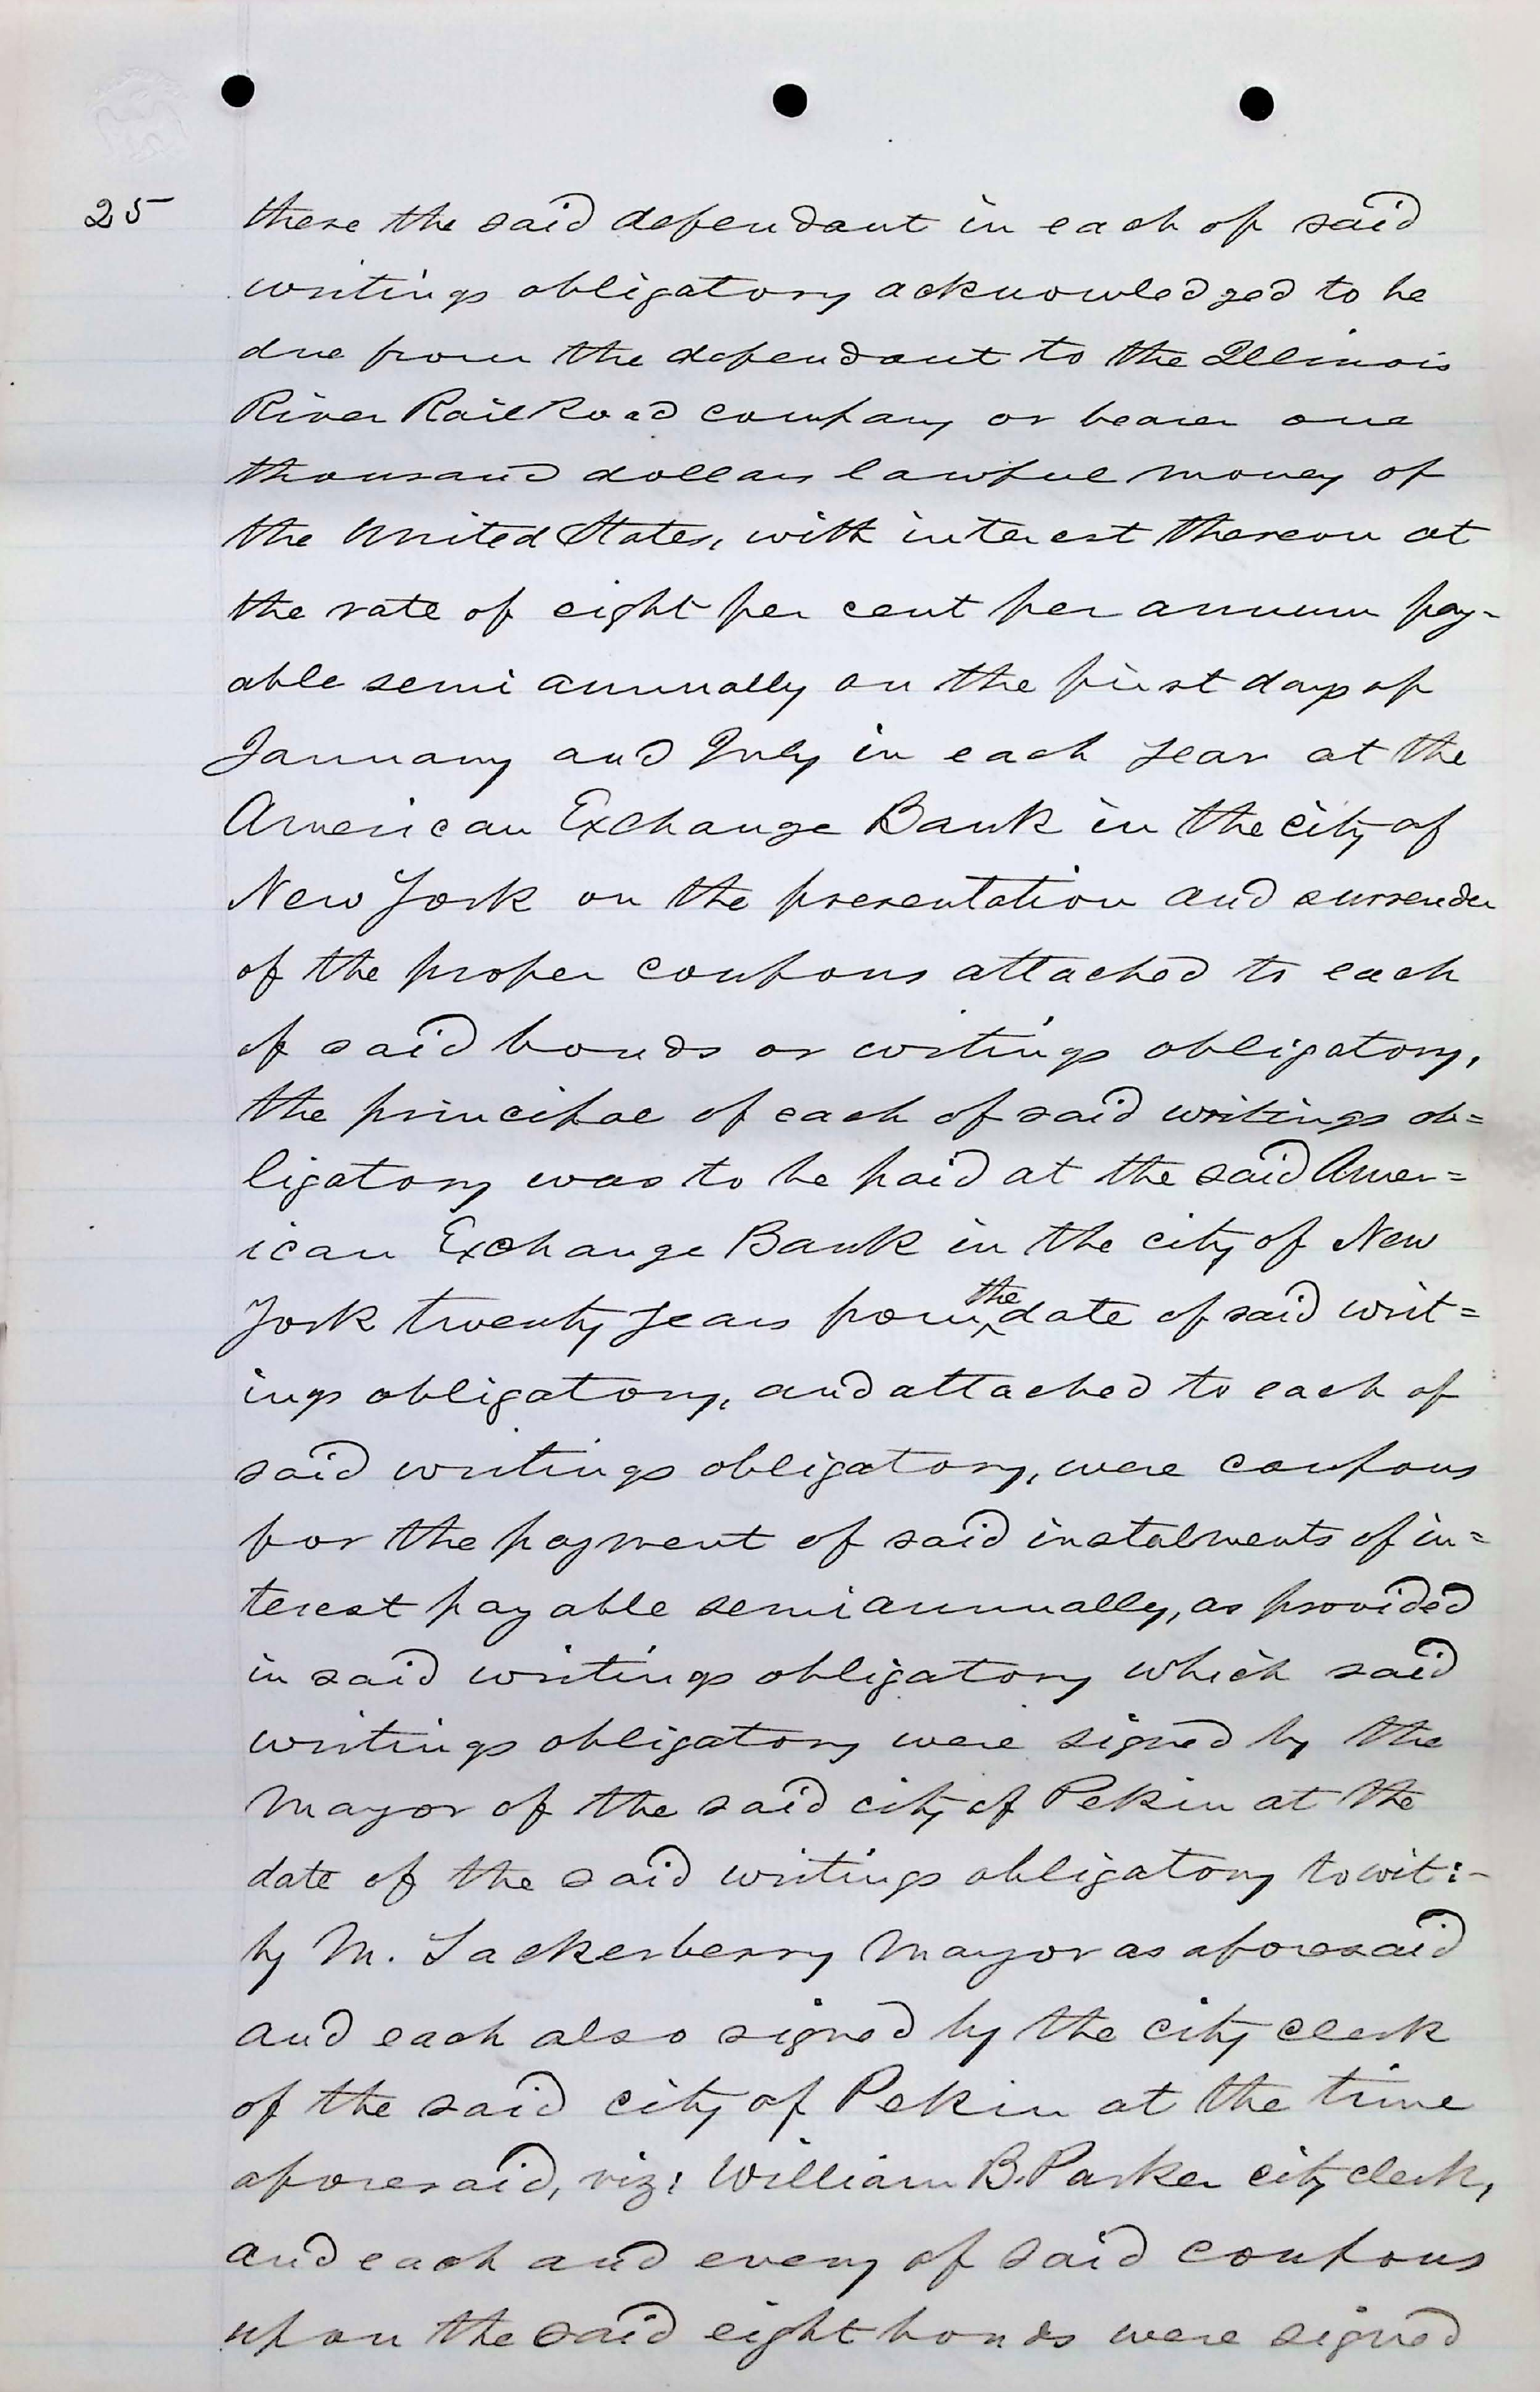 25
there the said defendant in each of said
writings obligatory acknowledged to be
due from the defendant to the Illinois
River Rail Road company or bearer one
thousand dollars lawful money of
the United States, with interest thereon at
the rate of eight per cent per annum pay-
able semi annually on the first days of
January and July in each year at the
American Exchange Bank in the city of
New York on the presentation and surrender
of the proper coupons attached to each
of said bonds or writings obligatory,
the principal of each of said writings ob=
ligatory was to be paid at the said Amer=
ican Exchange Bank in the city of New
York twenty years from the date of said writ=
ings obligatory, and attached to each of
said writings obligatory, were coupons
for the payment of said instalments of in=
terest payable semi annually, as provided
in said writings obligatory which said
writings obligatory were signed by the
Mayor of the said city of Pekin at the
date of the said writings obligatory towit:-
by M. Tackerberry Mayor as aforesaid
and each also signed by the city clerk
of the said city of Pekin at the time
aforesaid, viz: William B. Parker city clerk,
and each and every of said coupons
upon the said eight bonds were signed